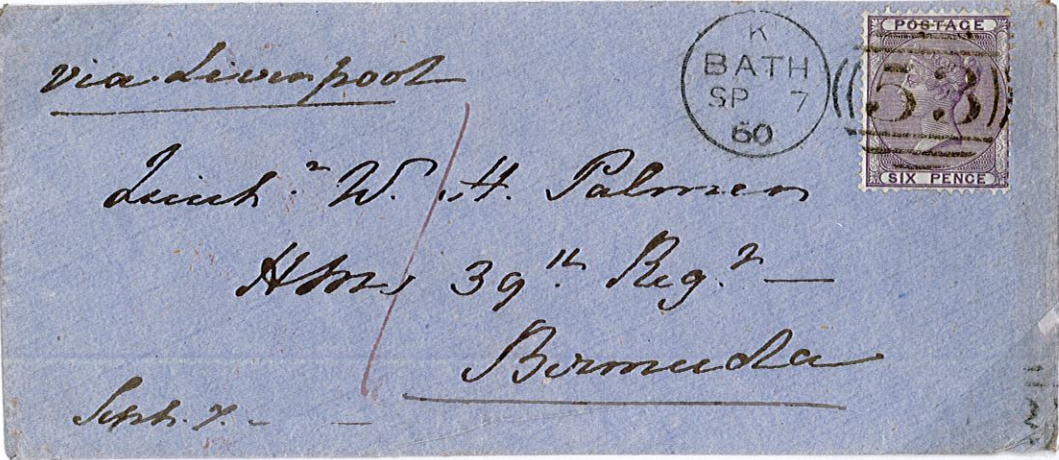 via Liverpool
K
BATH
SP 7
60
POSTAGE
53
SIX PENCE
Lieut.t W. H. Palmer
HMs 39th. Reg.t —
Bermuda
Septr. 7. - —